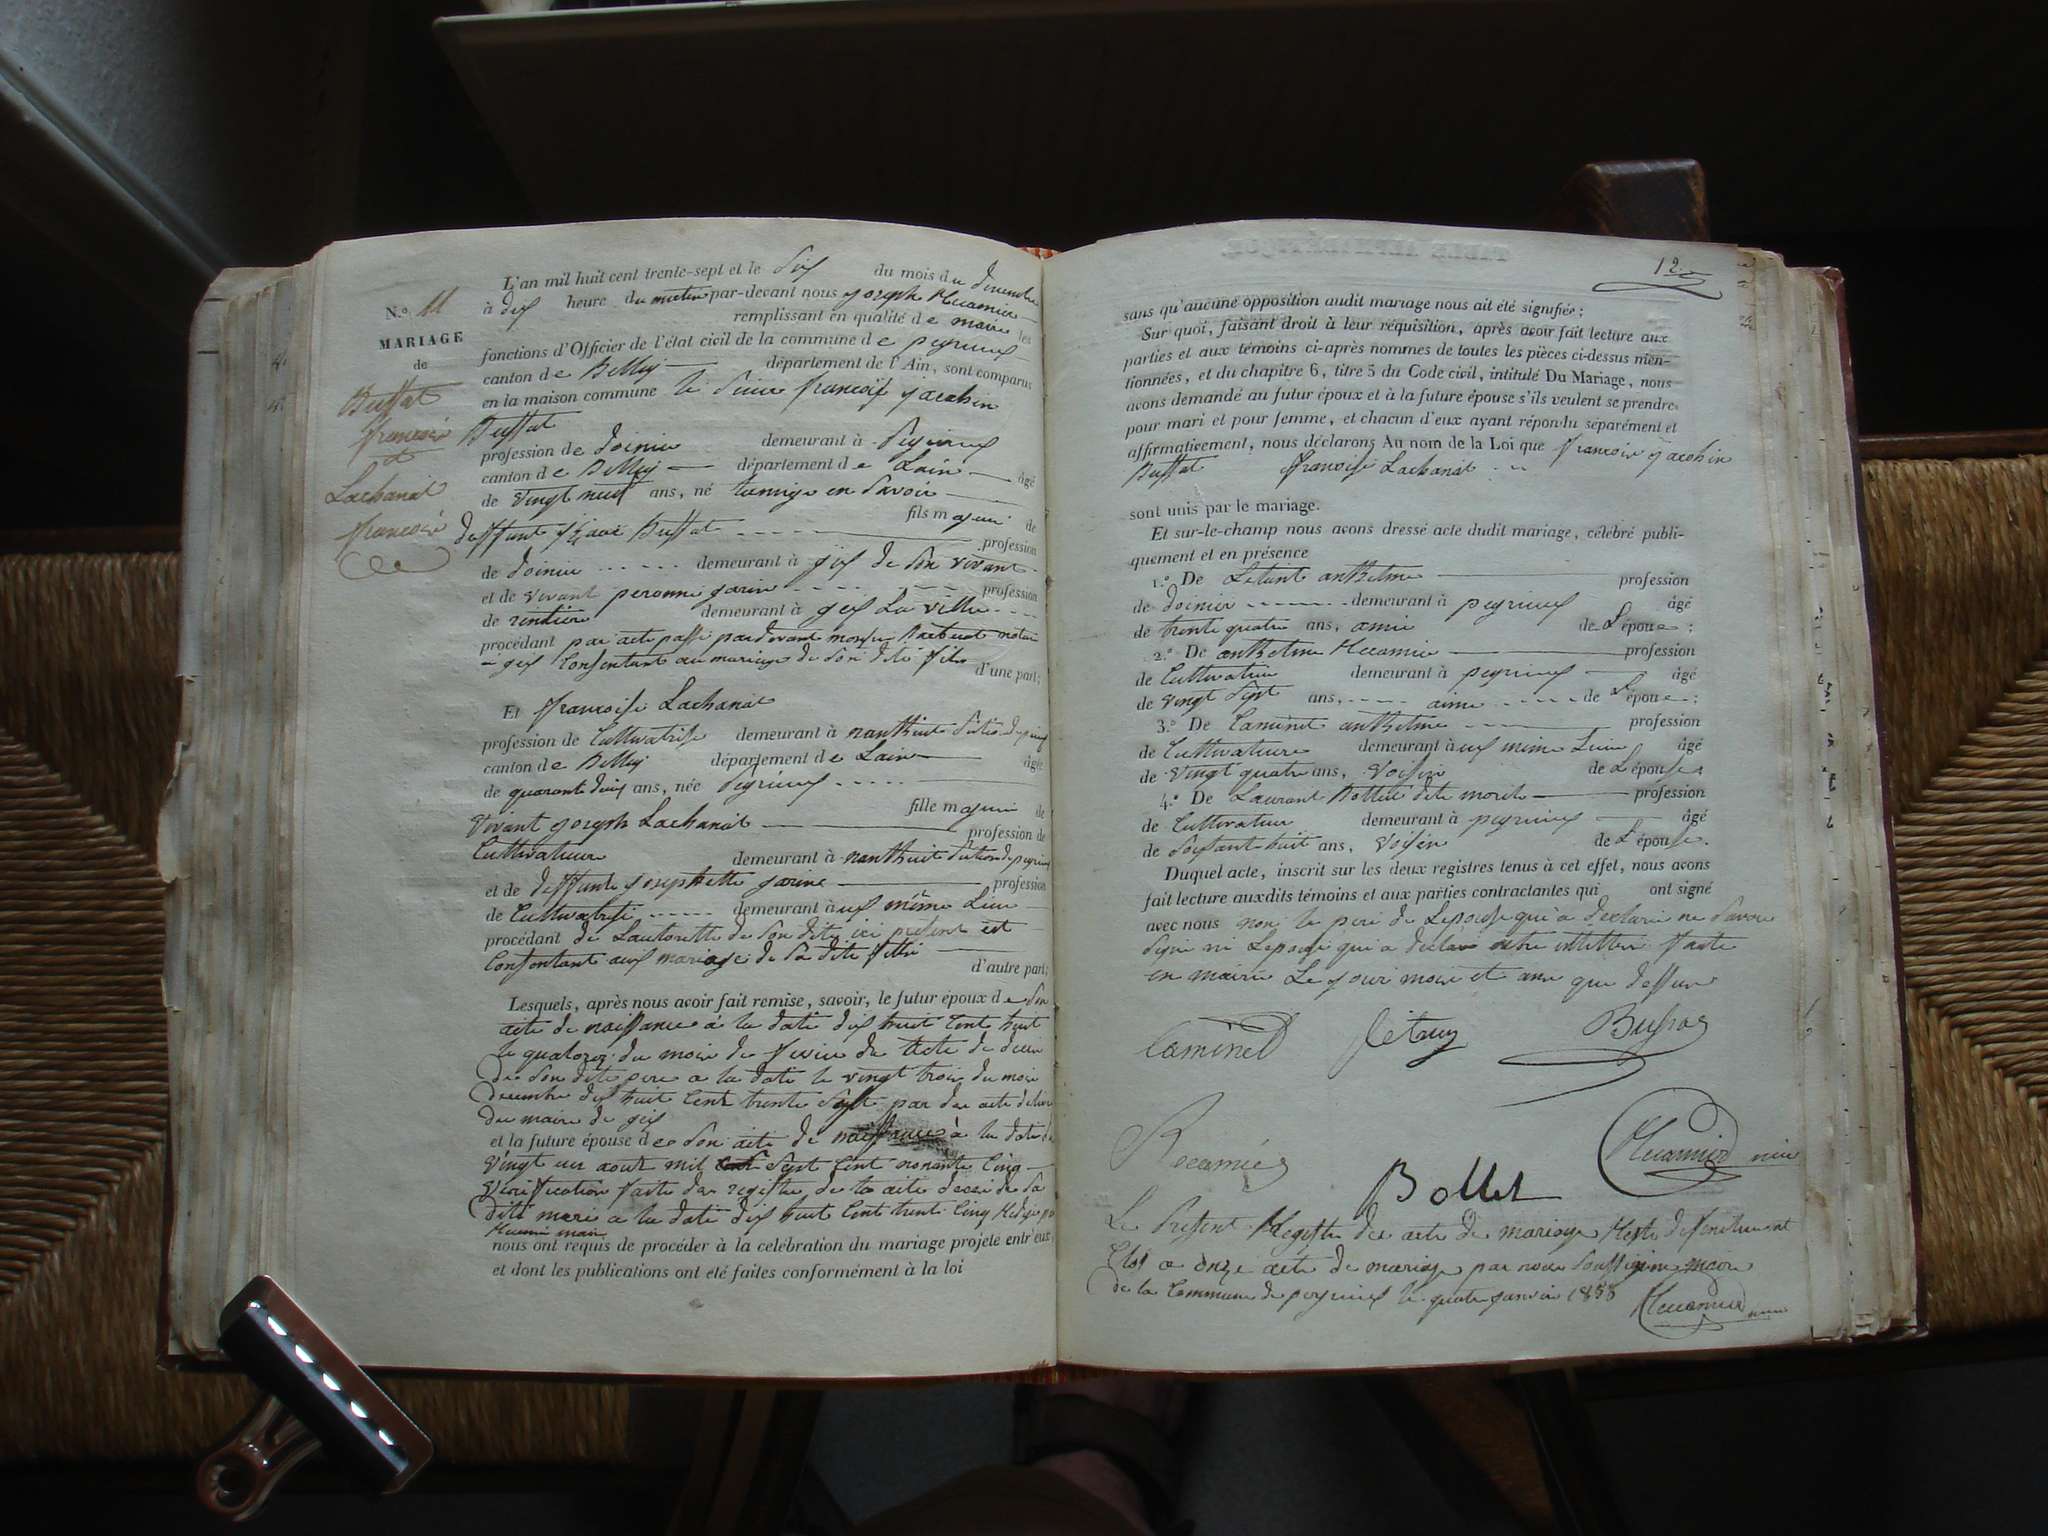 N.o 11
MARIAGE
de
Bussat
francois
et
Lachanat
francoise
L'an mil huit cent trente-sept et le dix du mois du décembre
à dix heure du matin par-devant nous joseph Récamier
remplissant en qualité de maire les
fonctions d'Officier de l'état civil de la commune de peyrieux
canton de Belley département de l'Ain, sont comparus
en la maison commune le sieur francois jacobin
Bussat
profession de demeurant à peyrieux
canton de Belley département de Lain âgé
de vingt neuf ans, né en Savoie
fils majeur de
deffunt Bussat profession
de demeurant à gex de son vivant
et de vivant peronne garin profession
de rentiere demeurant à gex La ville
procédant par acte passé pardevant notaire
a gex Consentant au mariage de son dit fils d'une part;
Et francoise Lachanat
profession de Cultivatrise demeurant à nanthuit
canton de Belley département de Lain âgée
de quarante deux ans, née peyrieux
fille majeure de
vivant joseph Lachanat profession de
Cultivateure demeurant à nanthuit
et de deffunte josephette garine profession
de Cultivatrise demeurant à même Lieu
procédant de Lautorette de son dite ici présent est
Consentant aux mariage de sa dite fille d'autre part;
Lesquels, après nous avoir fait remise, savoir, le futur époux de son
acte de naissance à la date dix huit Cent huit
le quatorze du mois de
de son dite pere a la date le vingt trois du mois
décembre dix huit Cent trente sept par
du maire de gex
et la future épouse de son acte de naissance à la date de
vingt un aout mil sept Cent nonante Cinq
vérification faite des registre de la acte de sa
dite mere a la date dix huit Cent trente Cinq
Récamier maire
nous ont requis de procéder à la celébration du mariage projeté entr'eux,
et dont les publications ont été faites conformément à la loi
12
sans qu'aucune opposition audit mariage nous ait été signifiée;
Sur quoi, faisant droit à leur réquisition, après avoir fait lecture aux
parties et aux témoins ci-après nommés de toutes les pièces ci-dessus men-
tionnées, et du chapitre 6, titre 5 du Code civil, intitulé Du Mariage, nous
avons demandé au futur époux et à la future épouse s'ils veulent se prendre
pour mari et pour femme, et chacun d'eux ayant répondu séparément et
affirmativement, nous déclarons Au nom de la Loi que francois jacobin
Bussat francoise Lachanat
sont unis par le mariage.
Et sur-le-champ nous avons dressé acte dudit mariage, célébré publi-
quement et en présence
1.o De anthelme profession
de demeurant à peyrieux âgé
de trente quatre ans, amie de Lépouse;
2.o De anthelme Récamier profession
de Cultivateur demeurant à peyrieux âgé
de vingt sept ans, amie de Lépouse;
3.o De Caminet anthelme profession
de Cultivateure demeurant à même Lieu âgé
de vingt quatre ans, voisin de Lépouse;
4.o De Laurant Bollet dite profession
de Cultivateur demeurant à peyrieux âgé
de soixante huit ans, voisin de Lépouse.
Duquel acte, inscrit sur les deux registres tenus à cet effet, nous avons
fait lecture auxdits témoins et aux parties contractantes qui ont signé
avec nous non le pere de Lepouse qui a declaré ne savoir
signe ni Lepouse qui a déclaré faite
en mairie Le jour mois et ans que dessus
Caminet Bussat
Récamier Bollet Récamier maire
Le présent Registre des acte de mariage
Clos a onze acte de mariage par nous soussigné maire
de la Commune de peyrieux le quatre janvier 1838 Récamier maire